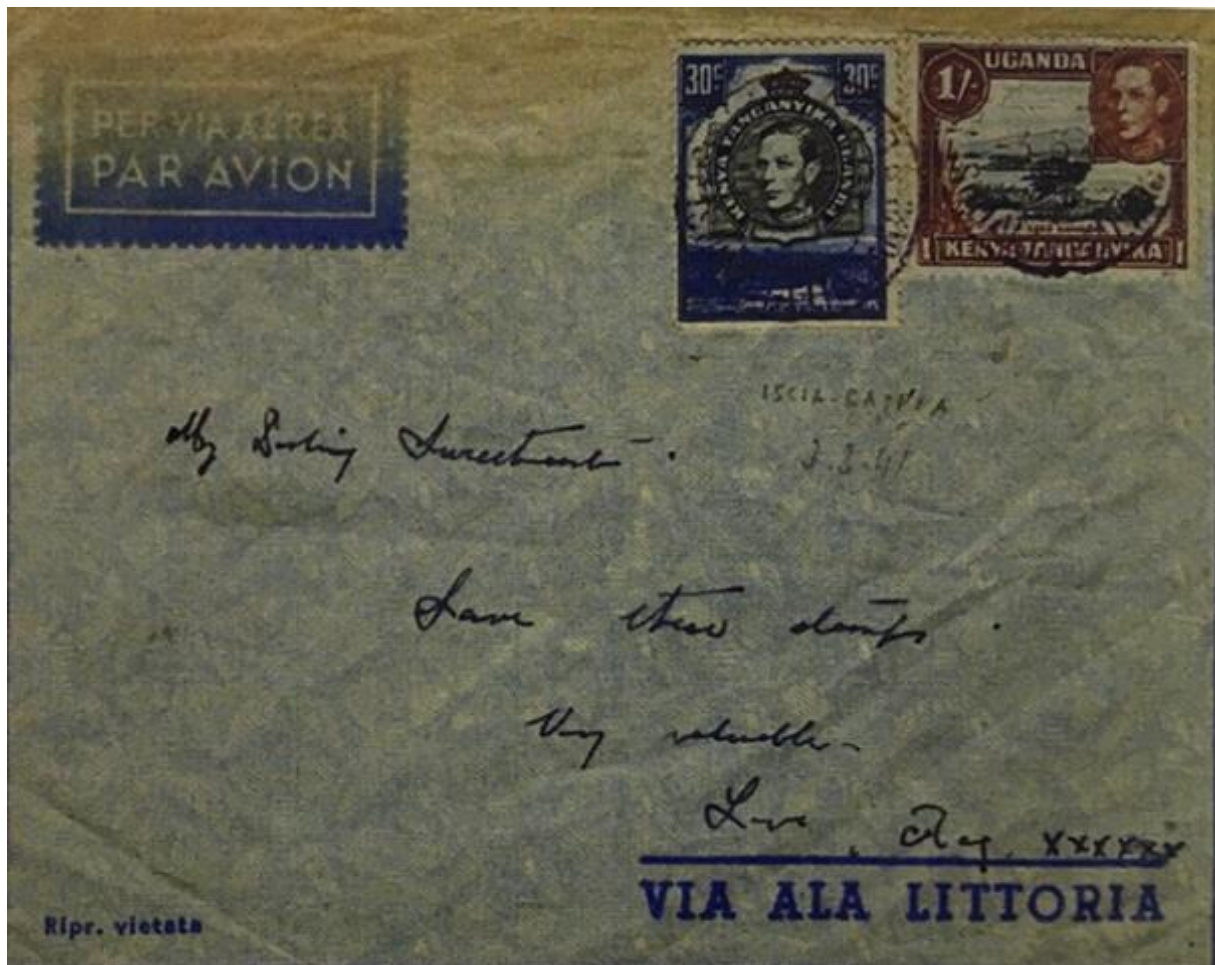 PER VIA AEREA
PAR AVION
30c 30c
KENYA TANGANYIKA UGANDA
1/-
UGANDA
KENYA TANGANYIKA
My Darling Sweetheart.
Save these stamps.
Very valuable-
Love, Reg. xxxxxx
VIA ALA LITTORIA
Ripr. vietata